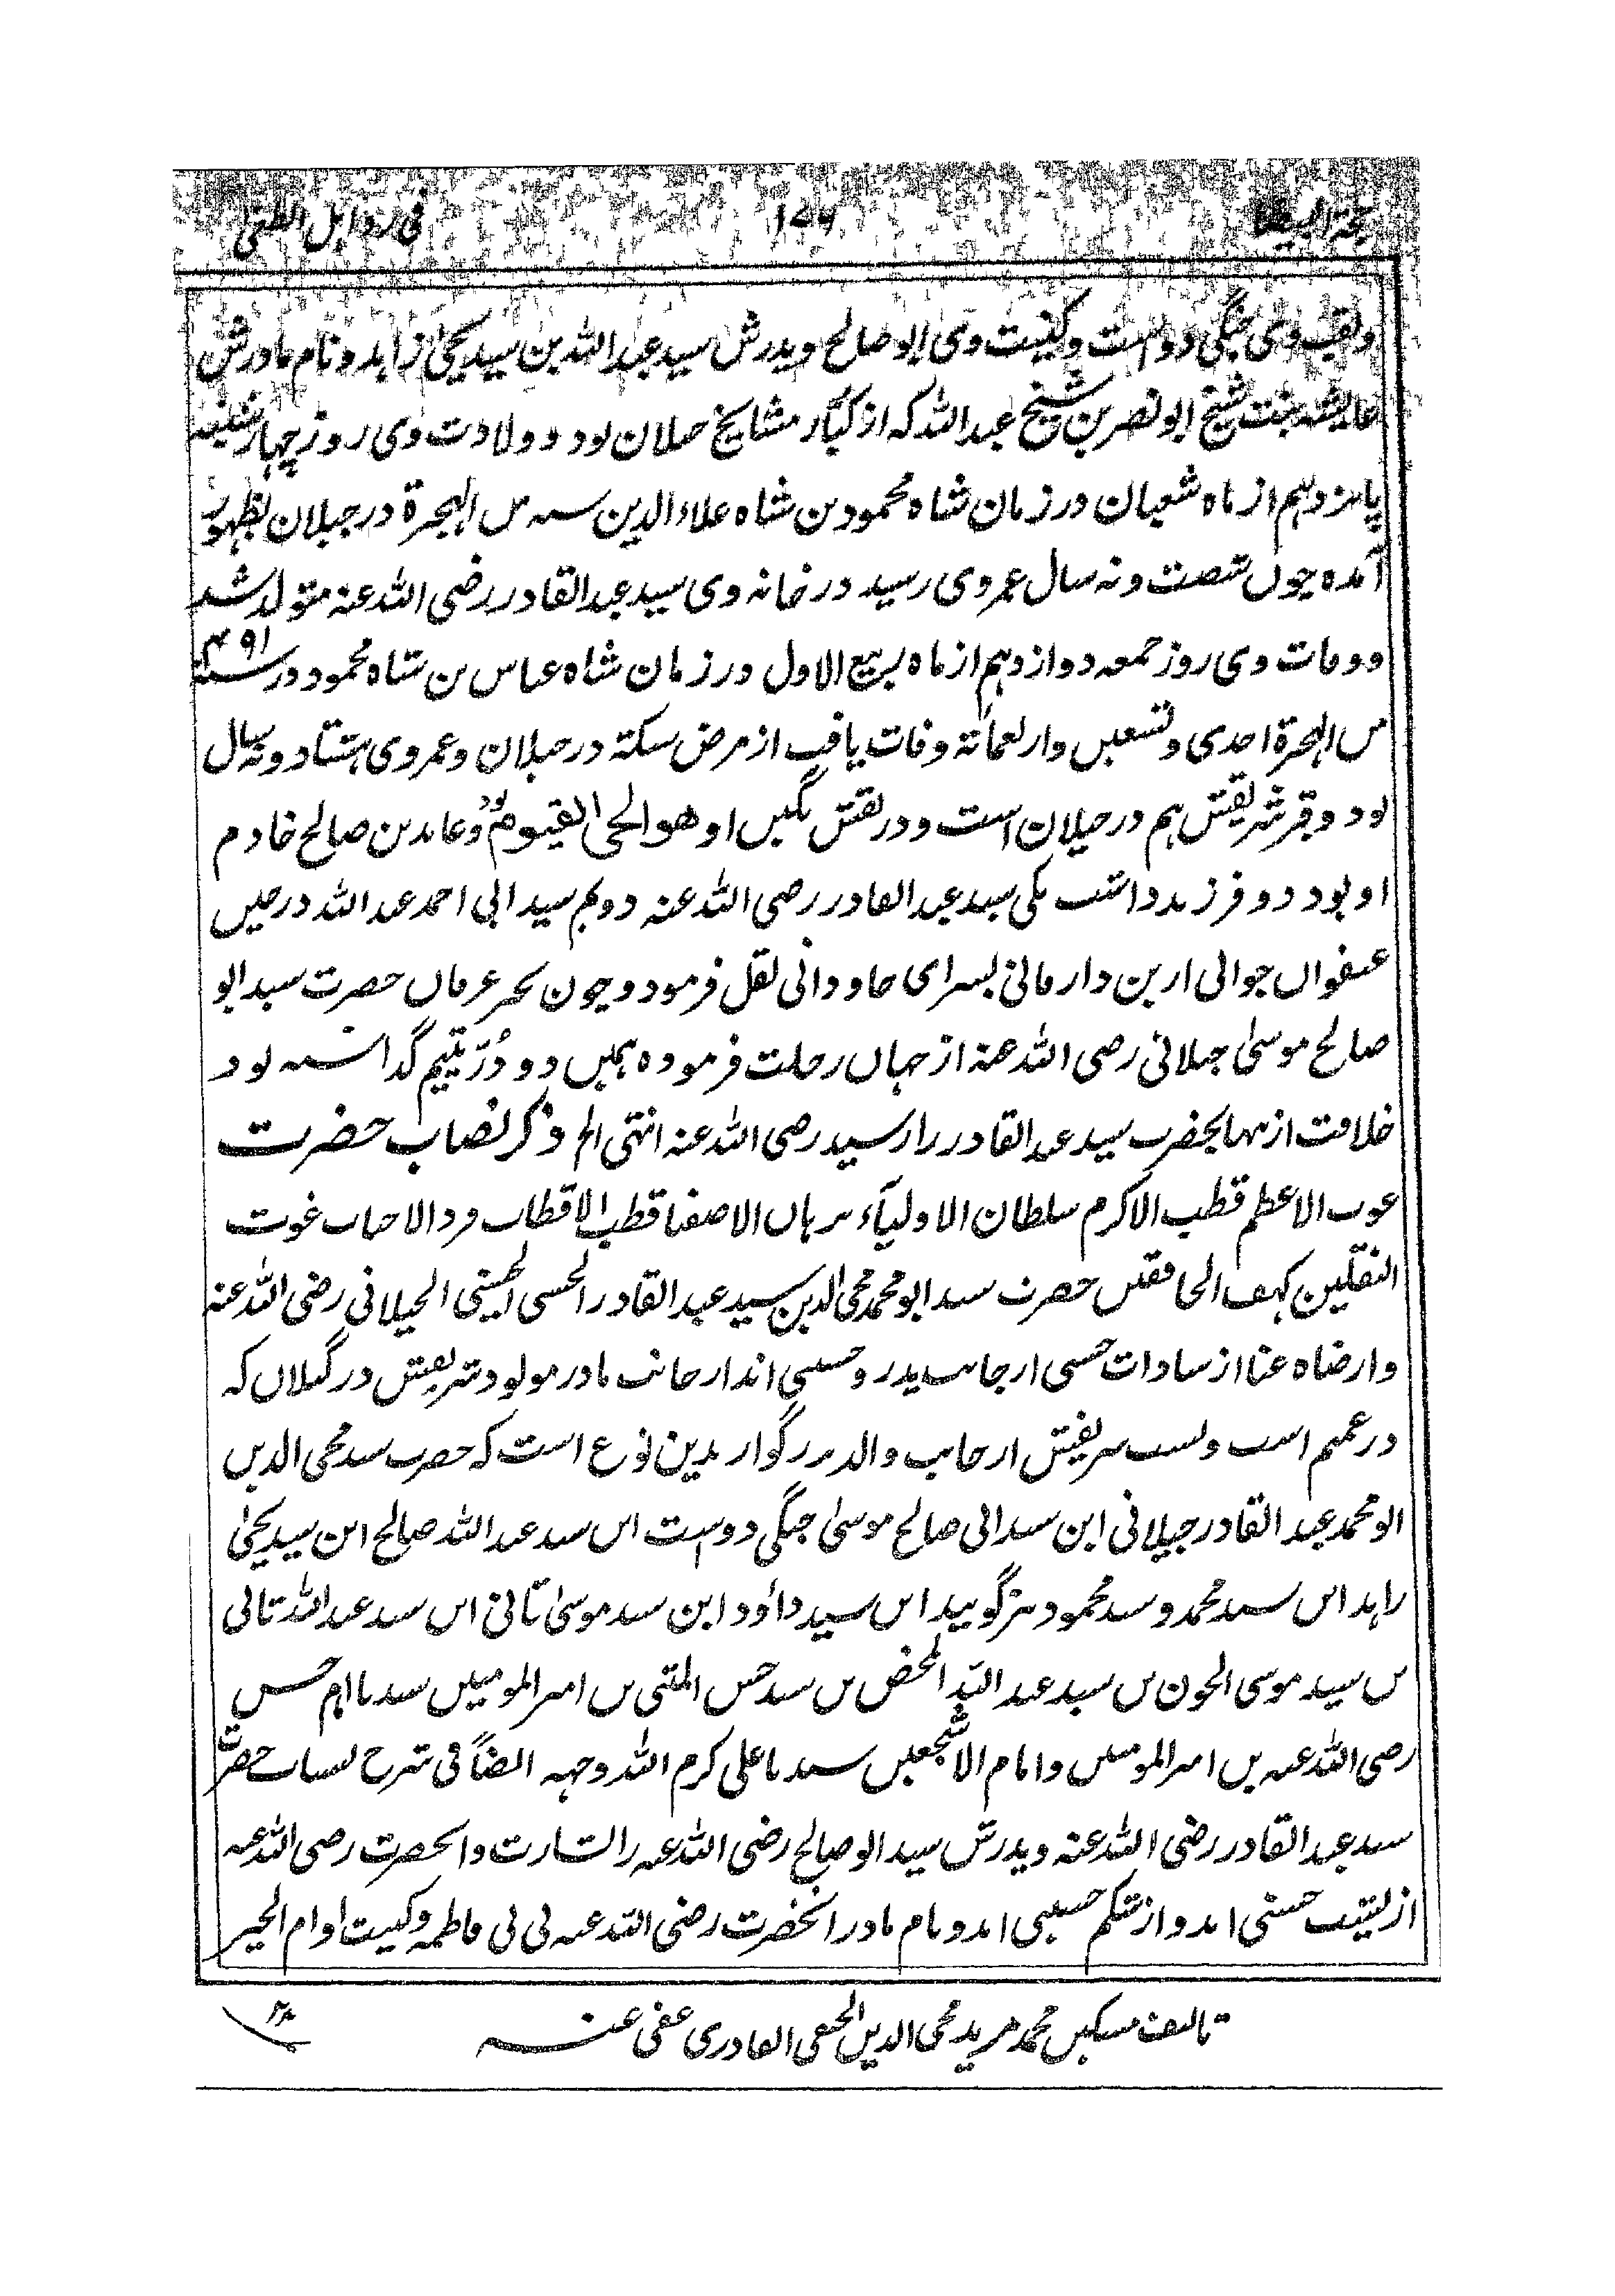 فی رد اہل
ولقب وی جنگی دوست وکنیت وی ابو صالح وپدرش سید عبد اللہ بن سید یحیٰ زاہد ونام مادرش
عایشہ بنت شیخ ابو نصر بن شیخ عبد اللہ کہ از کبار مشایخ جیلان بود و ولادت وی روز چہار شنبہ
پانزدہم از ماہ شعبان در زمان شاہ محمود بن شاہ علاء الدین سنہ من الہجرة در جیلان بظہور
آمدہ چوں شصت ونہ سال عمر وی رسید در خانہ وی سید عبد القادر رضی اللہ عنہ متولد شد
ووفات وی روز جمعہ دوازدہم از ماہ ربیع الاول در زمان شاہ عباس بن شاہ محمود در سنہ ۴۹۱
من الہجرة احدی وتسعین واربعمائة وفات یافت از مرض سکتہ در جیلان وعمر وی ہشتاد ونہ سال
بود وقبر شریفش ہم در جیلان است ودر نقش نگین او ھو الحی القیوم بود وعابد بن صالح خادم
او بود دو فرزند داشت یکی سید عبد القادر رضی اللہ عنہ دویم سید ابی احمد عبد اللہ در عین
عنفوان جوانی ازین دار فانی بسرای جاودانی نقل فرمود وچون بحر عرفان حضرت سید ابو
صالح موسیٰ جیلانی رضی اللہ عنہ از جہان رحلت فرمودہ ہمین دو دُرّ یتیم گذاشتہ بود
خلافت از بحضرت سید عبد القادر را رسید رضی اللہ عنہ انتہی الخ وذکر نصاب حضرت
غوث الاعظم قطب الاکرم سلطان الاولیآء برہان الاصفیا قطب الاقطاب فرد الاحباب غوث
الثقلین کہف الخافقین حضرت سید ابو محمد محی الدین سید عبد القادر الحسنی الحسینی الجیلانی رضی اللہ عنہ
وارضاہ عنا از سادات حسنی از جانب پدر وحسینی اند از جانب مادر مولود شریفش در گیلان کہ
در عجم است ونسب شریفش از جانب والد بزرگوار بدین نوع است کہ حضرت سید محی الدین
ابو محمد عبد القادر جیلانی ابن سید ابی صالح موسیٰ جنگی دوست ابن سید عبد اللہ صالح ابن سید یحیٰ
زاہد ابن سید محمد وسید محمود نیز گویند ابن سید داؤد ابن سید موسیٰ ثانی ابن سید عبد اللہ ثانی
بن سید موسی الجون بن سید عبد اللہ المحض بن سید حسن المثنی بن امیر المومنین سیدنا امام حسن
رضی اللہ عنہ بن امیر المومنین وامام الاشجعین سیدنا علی کرم اللہ وجہہ ایضاً فی شرح حضرت
سید عبد القادر رضی اللہ عنہ وپدرش سید ابو صالح رضی اللہ عنہ را بشارت وآنحضرت رضی اللہ عنہ
از پشت حسنی اند واز شکم حسینی اند ونام مادر آنحضرت رضی اللہ عنہ بی بی فاطمہ وکنیت او ام الخیر
تالیف مسکین محمد مرید محی الدین الحنفی القادری عفی عنہ